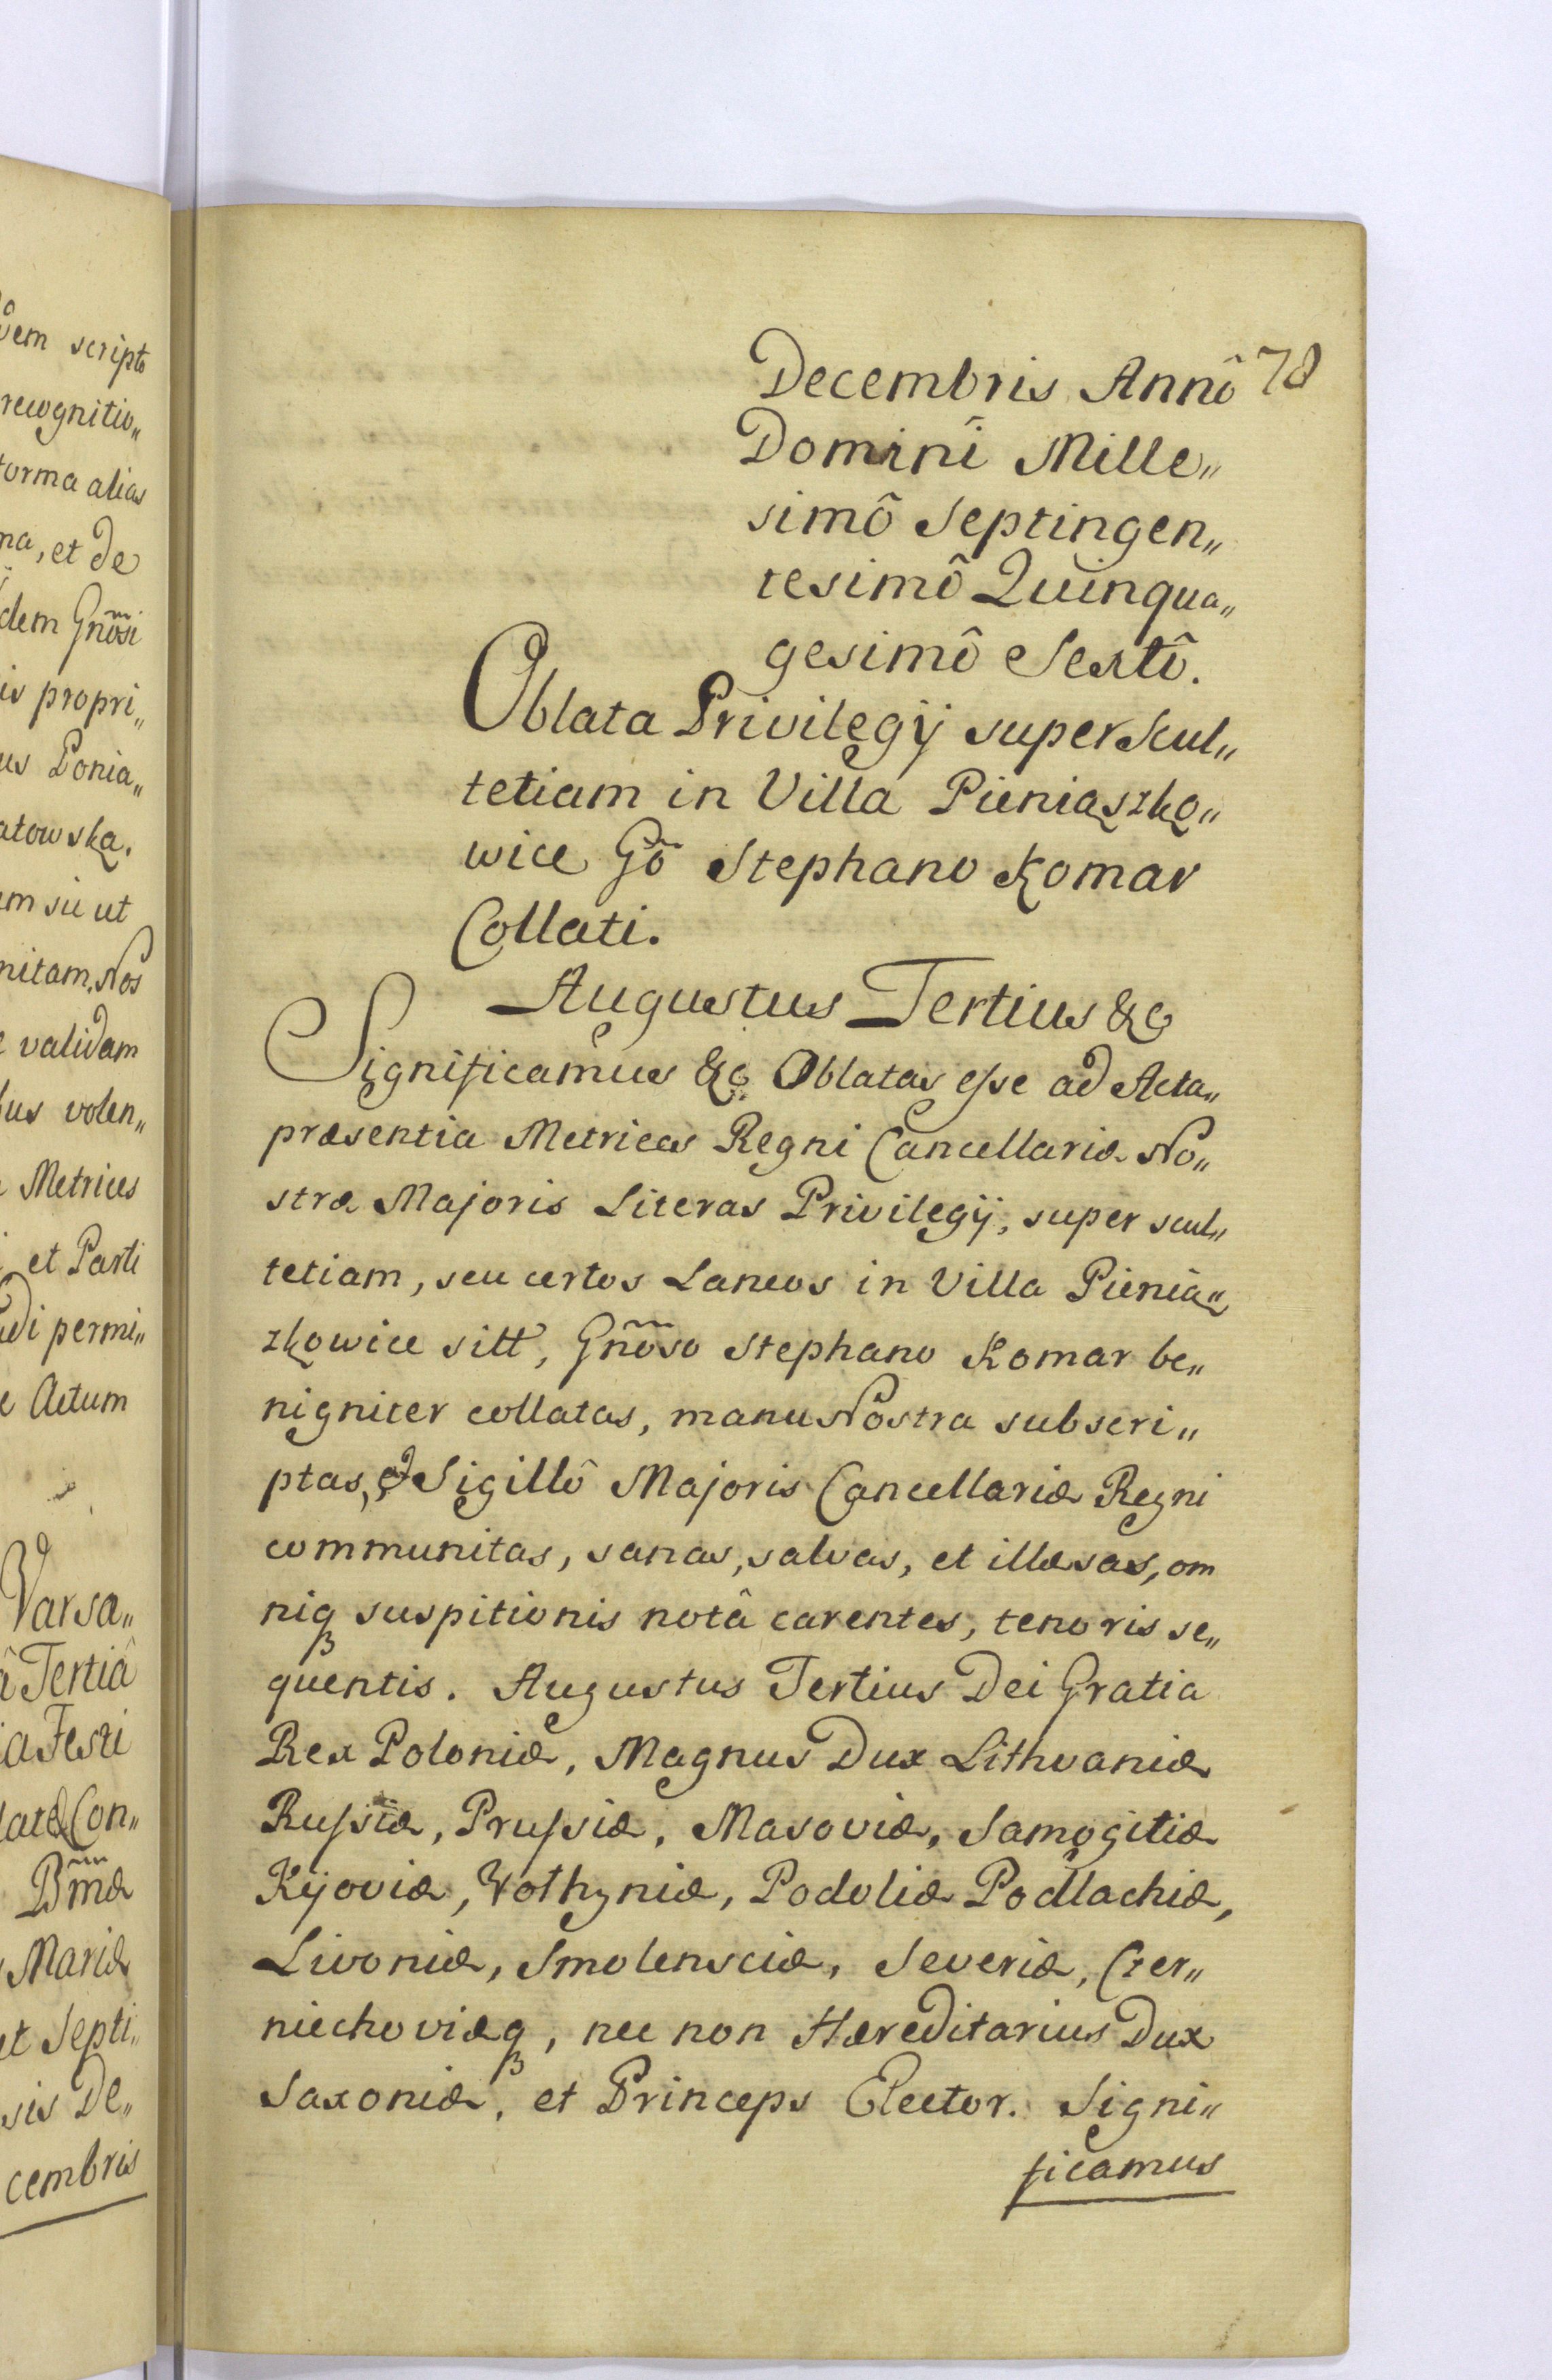 vem scripto
recognitio„
forma alias
ma, et de
dem Gnõsi
is propri„
us Ponia„
atowska.
em sic ut
nitam, Nos
e validam
bus volen„
Metrices
et Parti
di permi„
Actum
Varsa„
â Tertiâ
ia Festi
latæ Con„
Bmæ
Mariæ
et Septi„
sis De„
cembris
78
Decembris Annô
Domini Mille„
simô Septingen„
tesimô Quinqua„
gesimô Sextô.
Oblata Privilegÿ super Scul„
tetiam in Villa Pieniąszko„
wice Gõ Stephano Komar
Collati.
Augustus Tertius &c
Significamus &c. Oblatas esse ad Acta„
præsentia Metrices Regni Cancellariæ No„
stræ Majoris Literas Privilegÿ, super scul„
tetiam, seu certos Laneos in Villa Pienią„
zkowice sitt, Gnõso Stephano Komar be„
nigniter collatas, manu Nostra subscri„
ptas, et Sigillô Majoris Cancellariæ Regni
communitas, sanas, salvas, et illæsas, om
niq suspitionis notâ carentes, tenoris se„
quentis. Augustus Tertius Dei Gratia
Rex Poloniæ, Magnus Dux Lithvaniæ
Russiæ, Prussiæ, Masoviæ, Samogitiæ
Kijoviæ, Wolhyniæ, Podoliæ Podlachiæ,
Livoniæ, Smolensciæ, Severiæ, Czer„
niechoviæq, nec non Hæreditarius Dux
Saxoniæ, et Princeps Elector. Signi„
ficamus